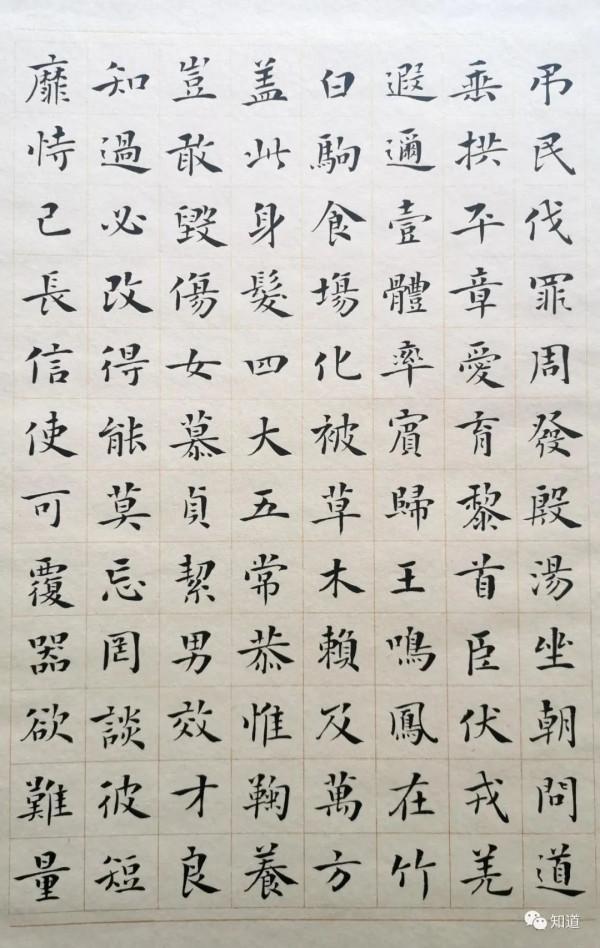 吊民伐罪周發殷湯坐朝問道
垂拱平章愛育黎首臣伏戎羌
遐邇壹體率賓歸王鳴鳳在竹
白駒食場化被草木賴及萬方
盖此身髮四大五常恭惟鞠養
豈敢毀傷女慕貞絜男效才良
知過必改得能莫忘罔談彼短
靡恃己長信使可覆器欲難量
知道